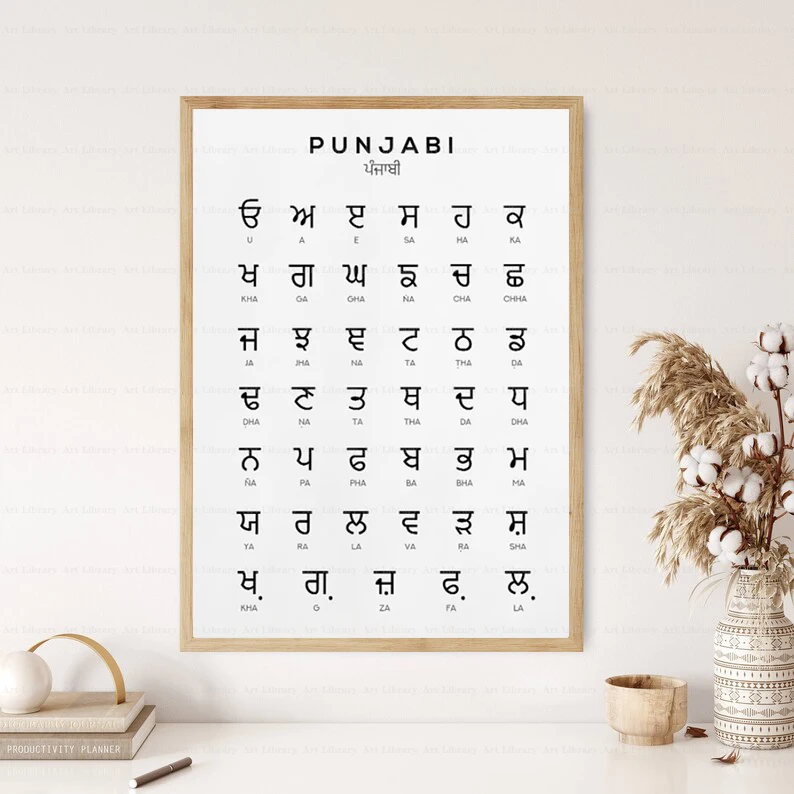 PUNJABI
ਪੰਜਾਬੀ
ੳ ਅ ੲ ਸ ਹ ਕ
U A E SA HA KA
ਖ ਗ ਘ ਙ ਚ ਛ
KHA GA GHA ÑA CHA CHHA
ਜ ਝ ਞ ਟ ਠ ਡ
JA JHA NA TA ṬHA ḌA
ਢ ਣ ਤ ਥ ਦ ਧ
ḌHA ṆA TA THA DA DHA
ਨ ਪ ਫ ਬ ਭ ਮ
ÑA PA PHA BA BHA MA
ਯ ਰ ਲ ਵ ੜ ਸ਼
YA RA LA VA ṚA SHA
ਖ਼ ਗ਼ ਜ਼ ਫ਼ ਲ਼
KHA G ZA FA LA
PRODUCTIVITY PLANNER
Art Library